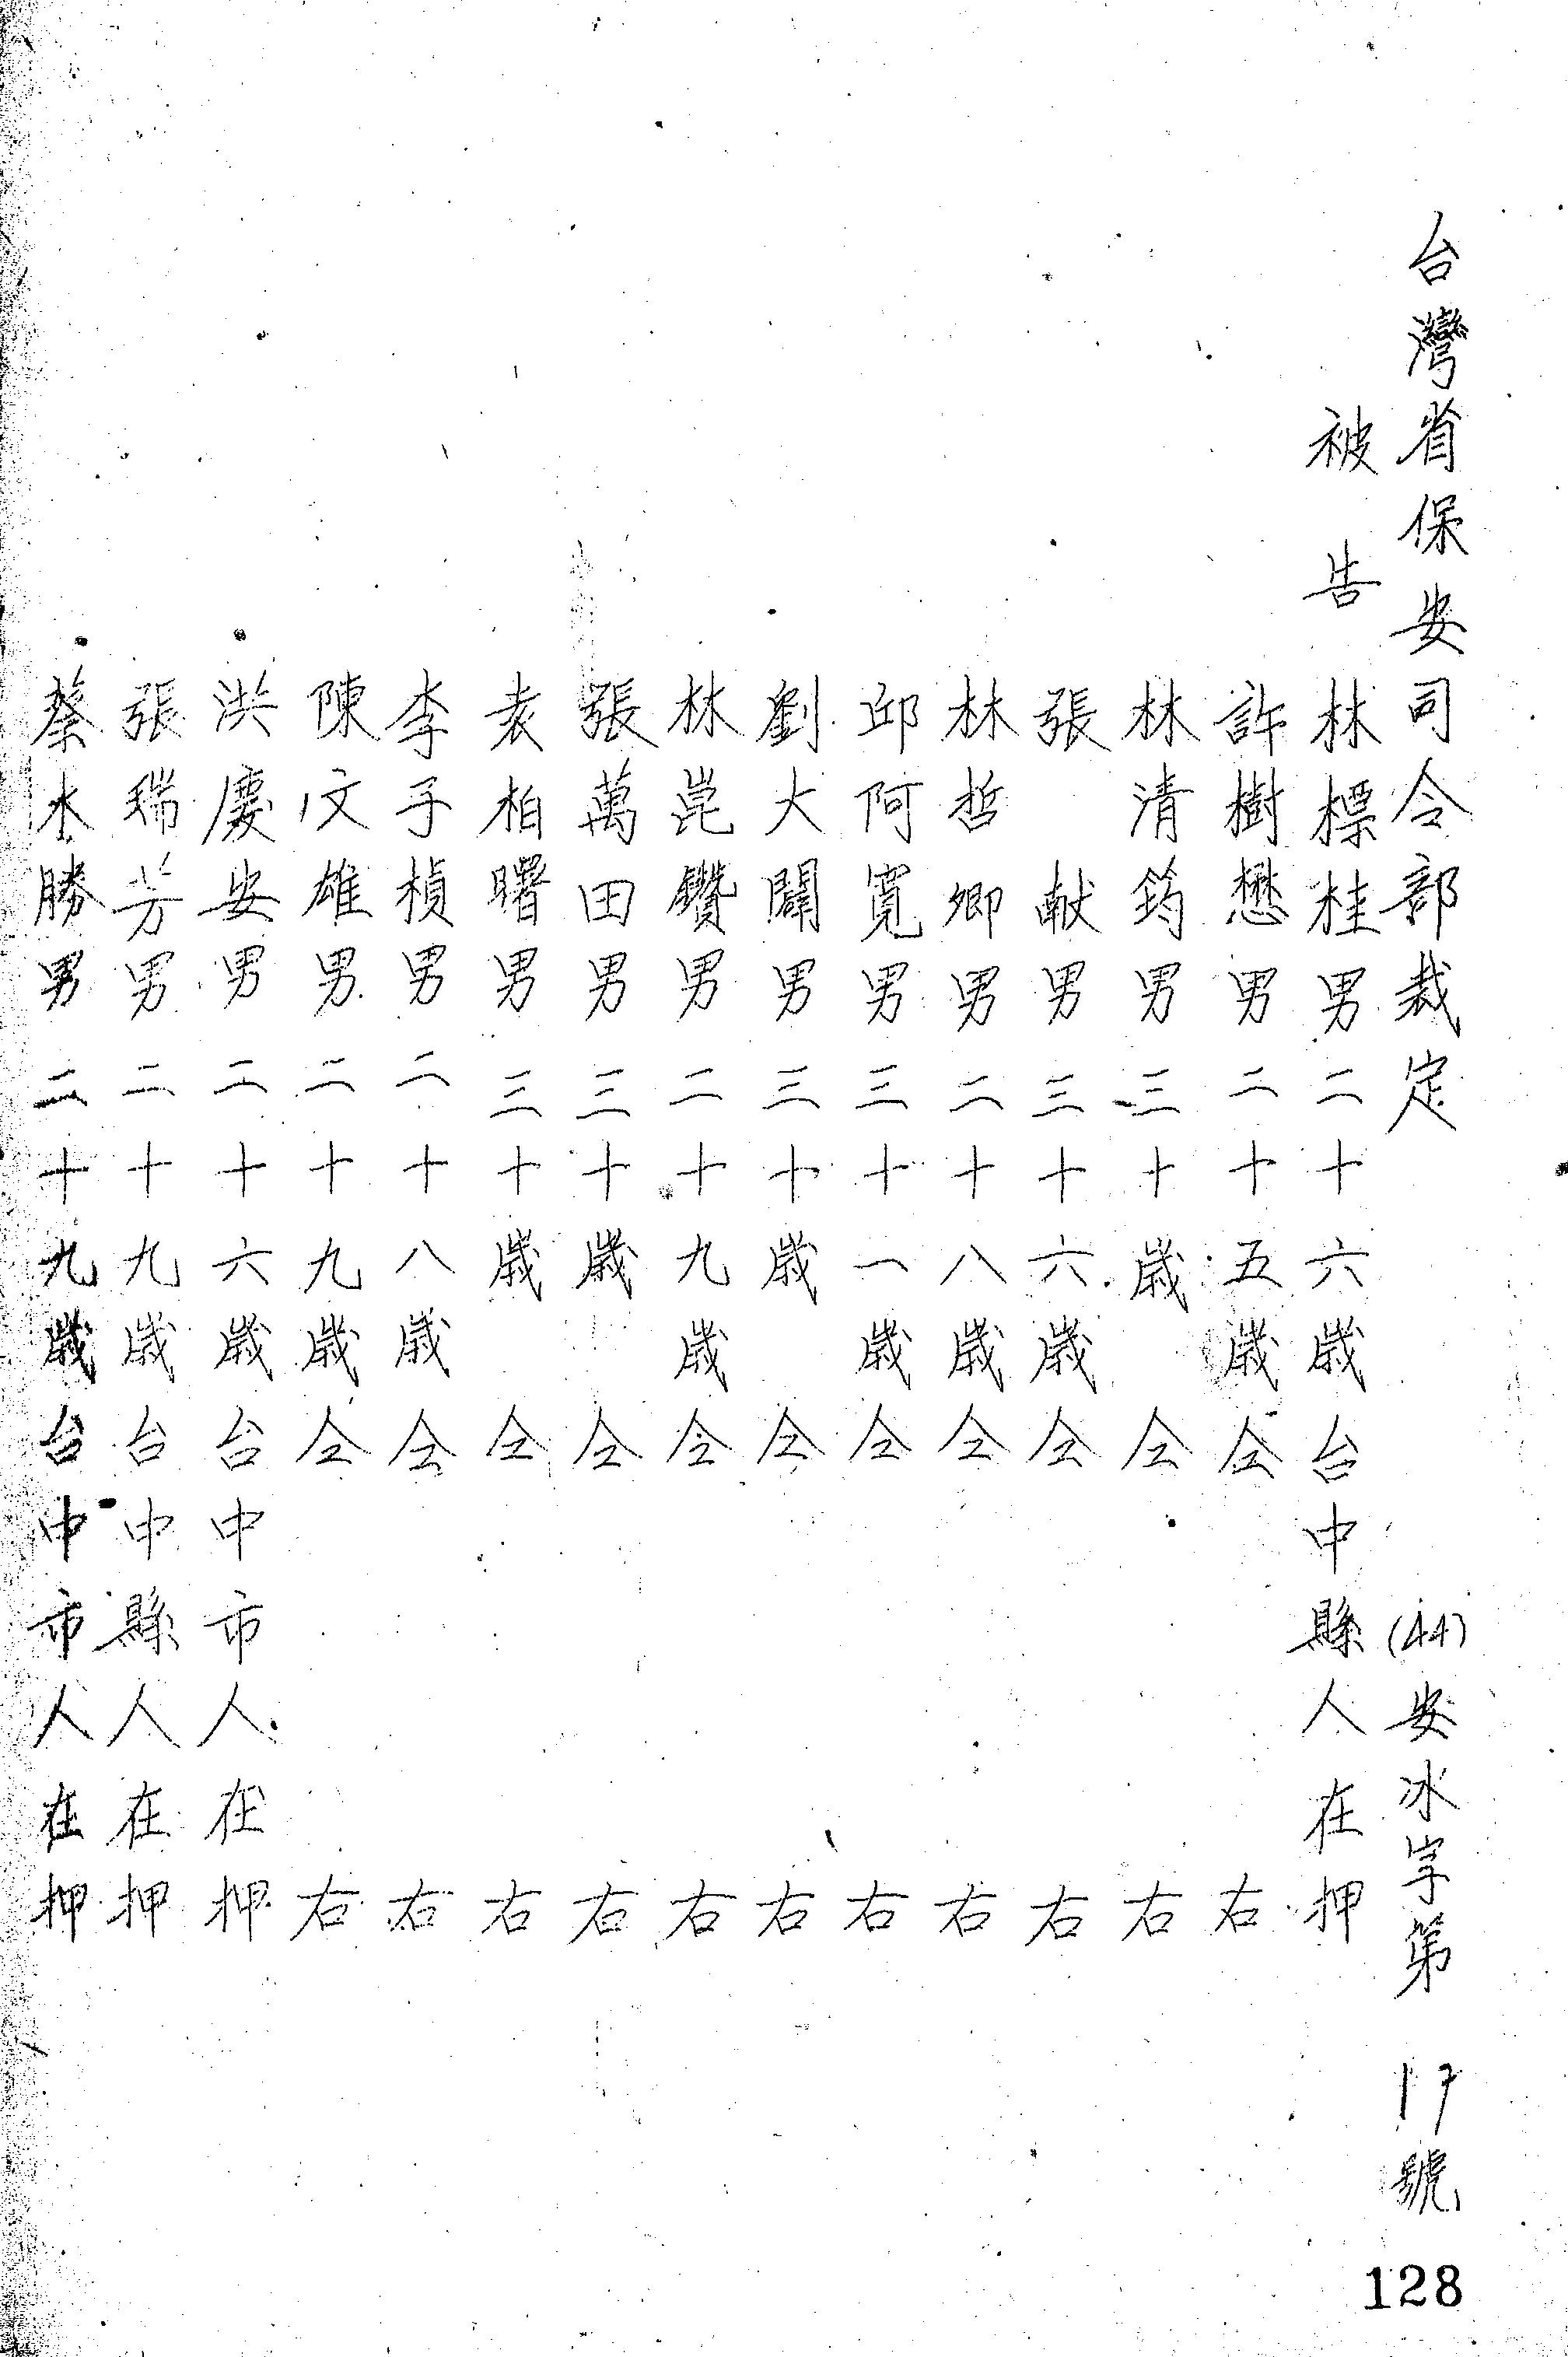 台灣省保安司令部裁定 (44)安氷字第 17 號
被告 林標桂 男 二十六歲 台中縣人 在押
許樹懋 男 二十五歲 仝 右
林清筠 男 三十歲 仝 右
張 献 男 三十六歲 仝 右
林哲卿 男 二十八歲 仝 右
邱阿寬 男 三十一歲 仝 右
劉大闢 男 三十歲 仝 右
林崑鑽 男 二十九歲 仝 右
張萬田 男 三十歲 仝 右
袁柏曙 男 三十歲 仝 右
李子楨 男 二十八歲 仝 右
陳文雄 男 二十九歲 仝 右
洪慶安 男 二十六歲 台中市人 在押
張瑞芳 男 二十九歲 台中縣人 在押
蔡水勝 男 二十九歲 台中市人 在押
128